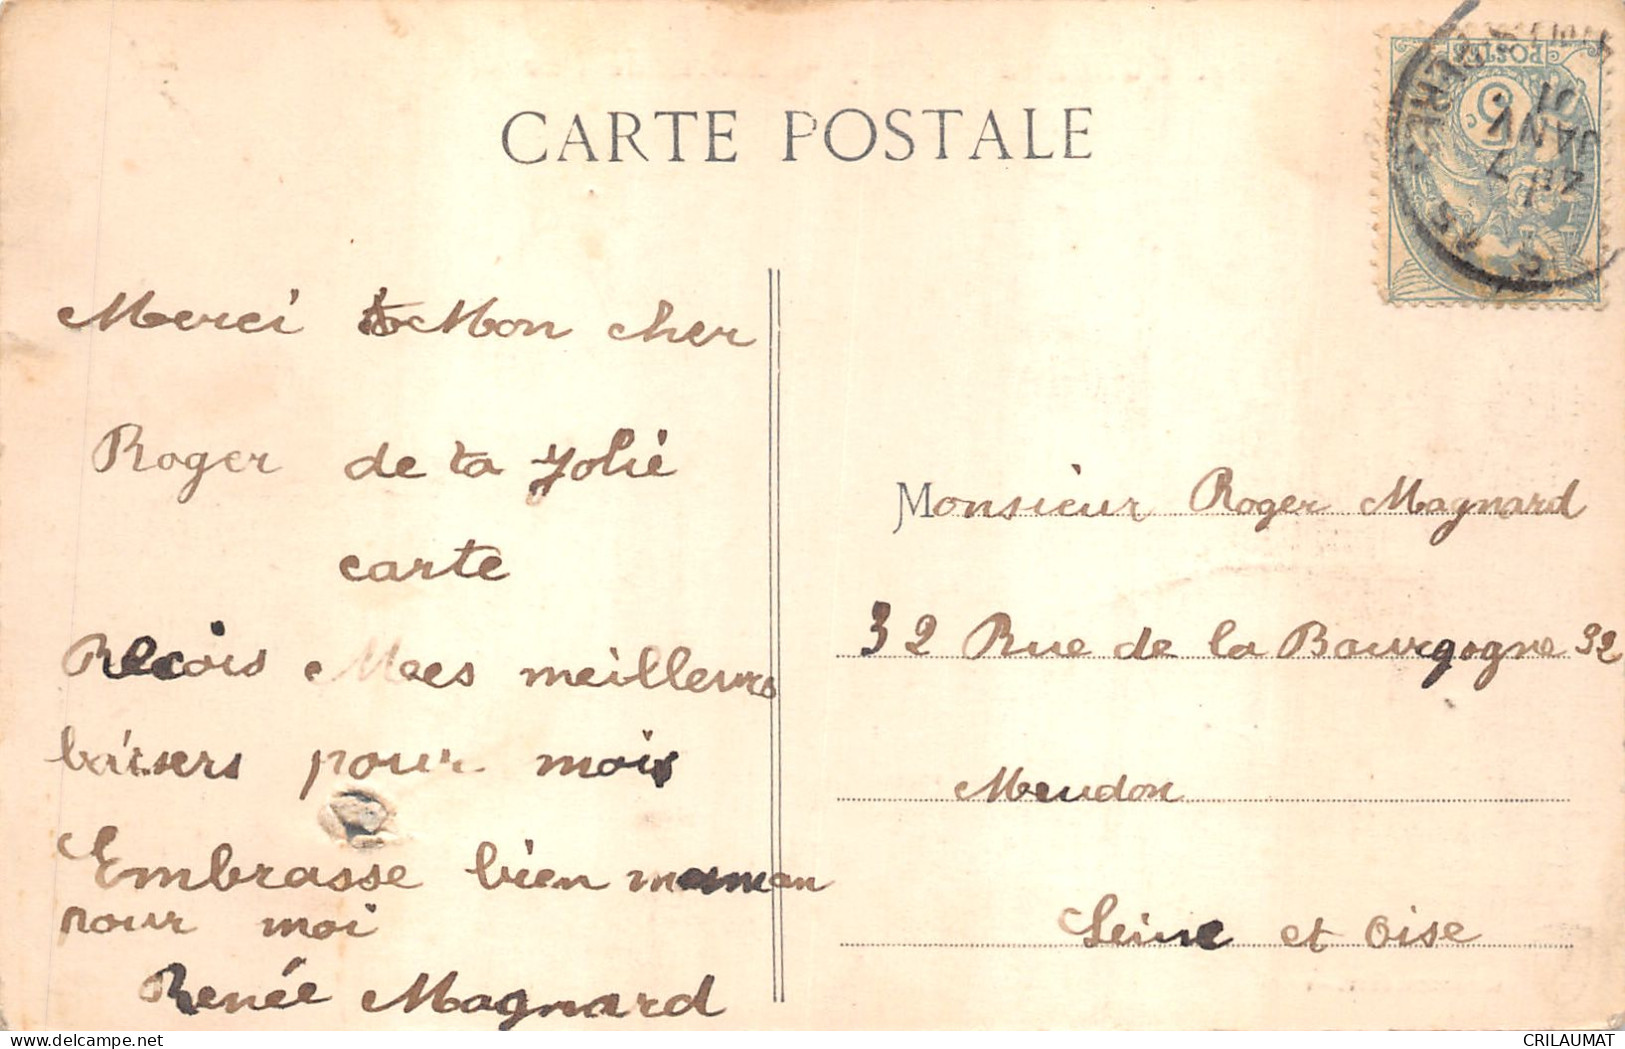 CARTE POSTALE
POSTES
5
7
JANV
Merci Mon cher
Roger de ta Jolie
carte
Recois Mes meilleurs
baisers pour mois
Embrasse bien maman
pour moi
Renée Magnard
Monsieur Roger Magnard
32 Rue de la Bourgogne 32
Meudon
Seine et Oise
CRILAUMAT